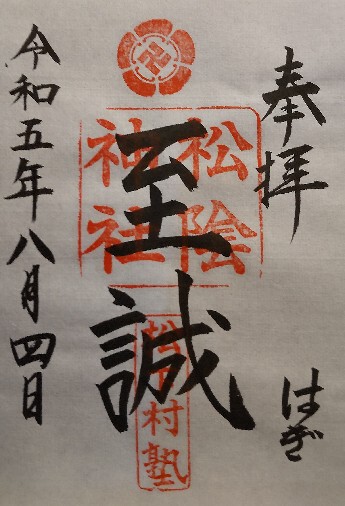 奉拝
はぎ
松陰
神社
至誠
松下村塾
令和五年八月四日